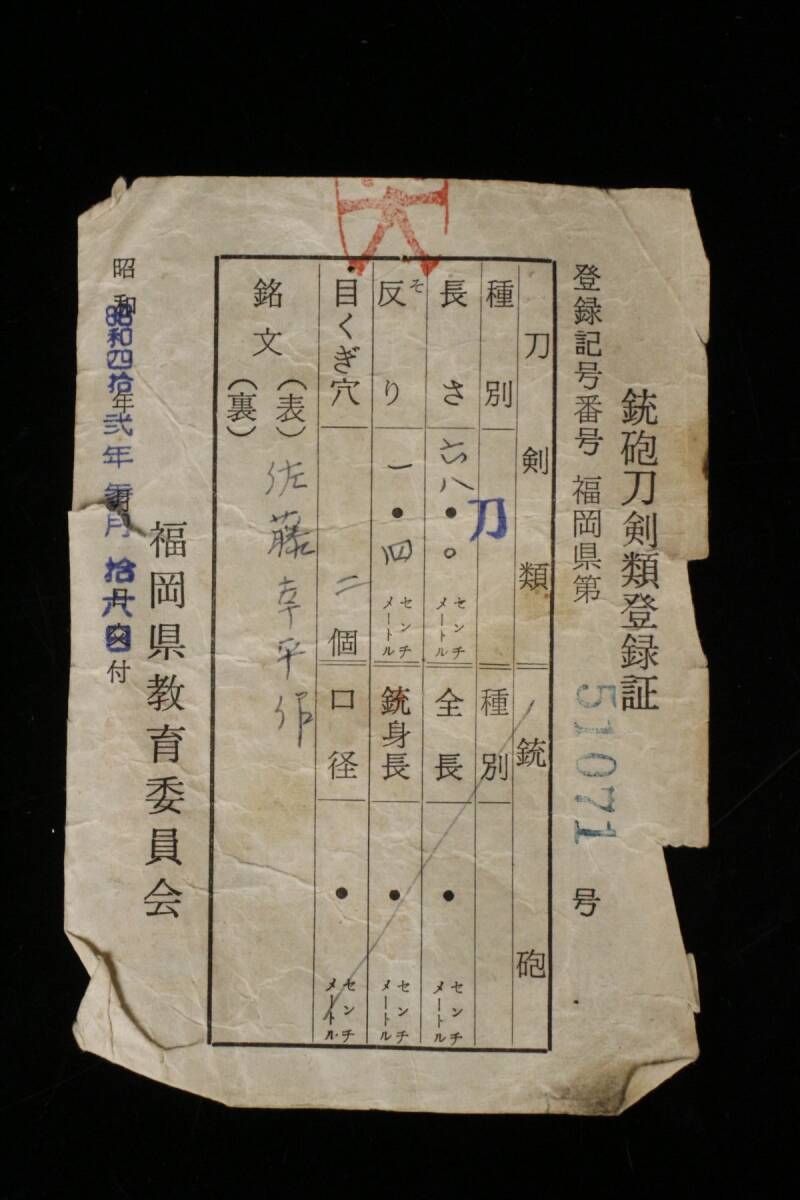 銃砲刀剣類登録証
登録記号番号 福岡県第 51071 号
刀剣類
種別 刀
長さ 六八・〇 センチメートル
反り 一・四 センチメートル
そ
目くぎ穴 二個
銃砲
種別
全長 ・ センチメートル
銃身長 ・ センチメートル
口径 ・ センチメートル
銘文 (表) 佐藤幸平作
(裏)
福岡県教育委員会
昭和 年 月 日交付
昭和四拾弐年 月 拾六日